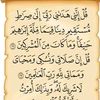 قُلْ إِنَّنِي هَدَىٰنِي رَبِّي إِلَىٰ صِرَٰطٍ
مُّسْتَقِيمٍ دِينًا قِيَمًا مِّلَّةَ إِبْرَٰهِيمَ
حَنِيفًا وَمَا كَانَ مِنَ الْمُشْرِكِينَ
قُلْ إِنَّ صَلَاتِي وَنُسُكِي وَمَحْيَايَ
وَمَمَاتِي لِلَّهِ رَبِّ الْعَٰلَمِينَ
لَا شَرِيكَ لَهُ وَبِذَٰلِكَ أُمِرْتُ